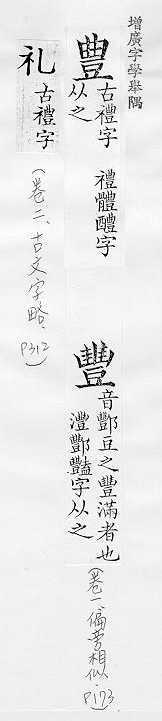 增廣字學舉隅
豊 古禮字 禮體醴字
从之
豐 音酆豆之豐滿者也
灃酆豔字从之
(卷一、偏旁相似. P173)
礼 古禮字
(卷二、古文字略. P312)